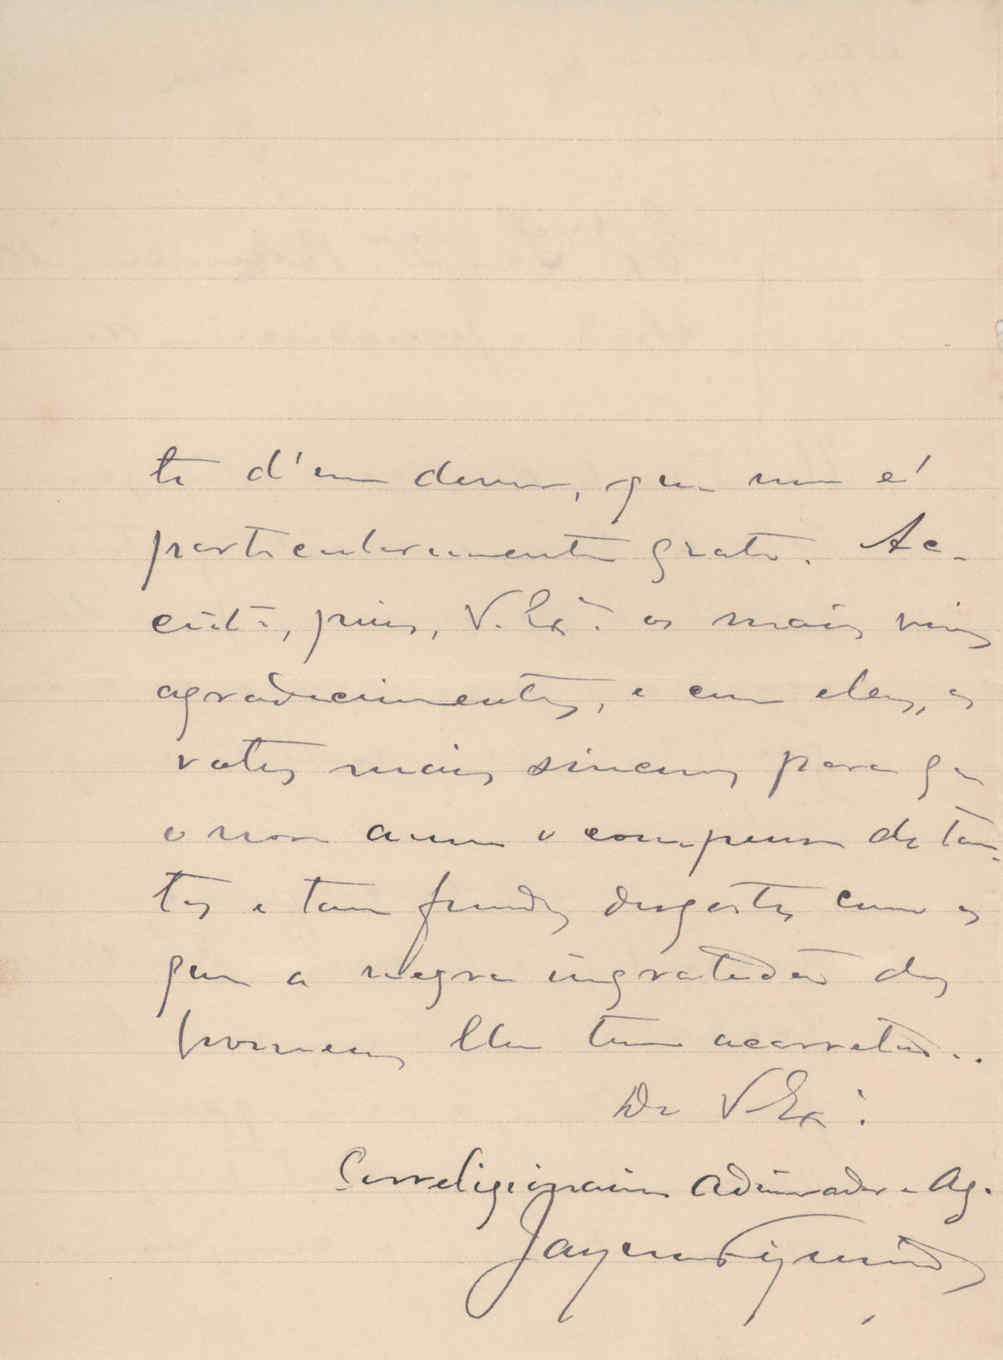 te d'um dever, que me é
particularmente grato. Ac-
ceite, pois, V. Exª. os mais vivos
agradecimentos, e com eles, os
votos mais sinceros para que
o novo anno o compense de tan-
tos e tam fundos desgostos como os
que a negra ingratidão dos
homens lhe tem acarretado..
De V Exª.
Correligionario admirador e Ag.
Jayme